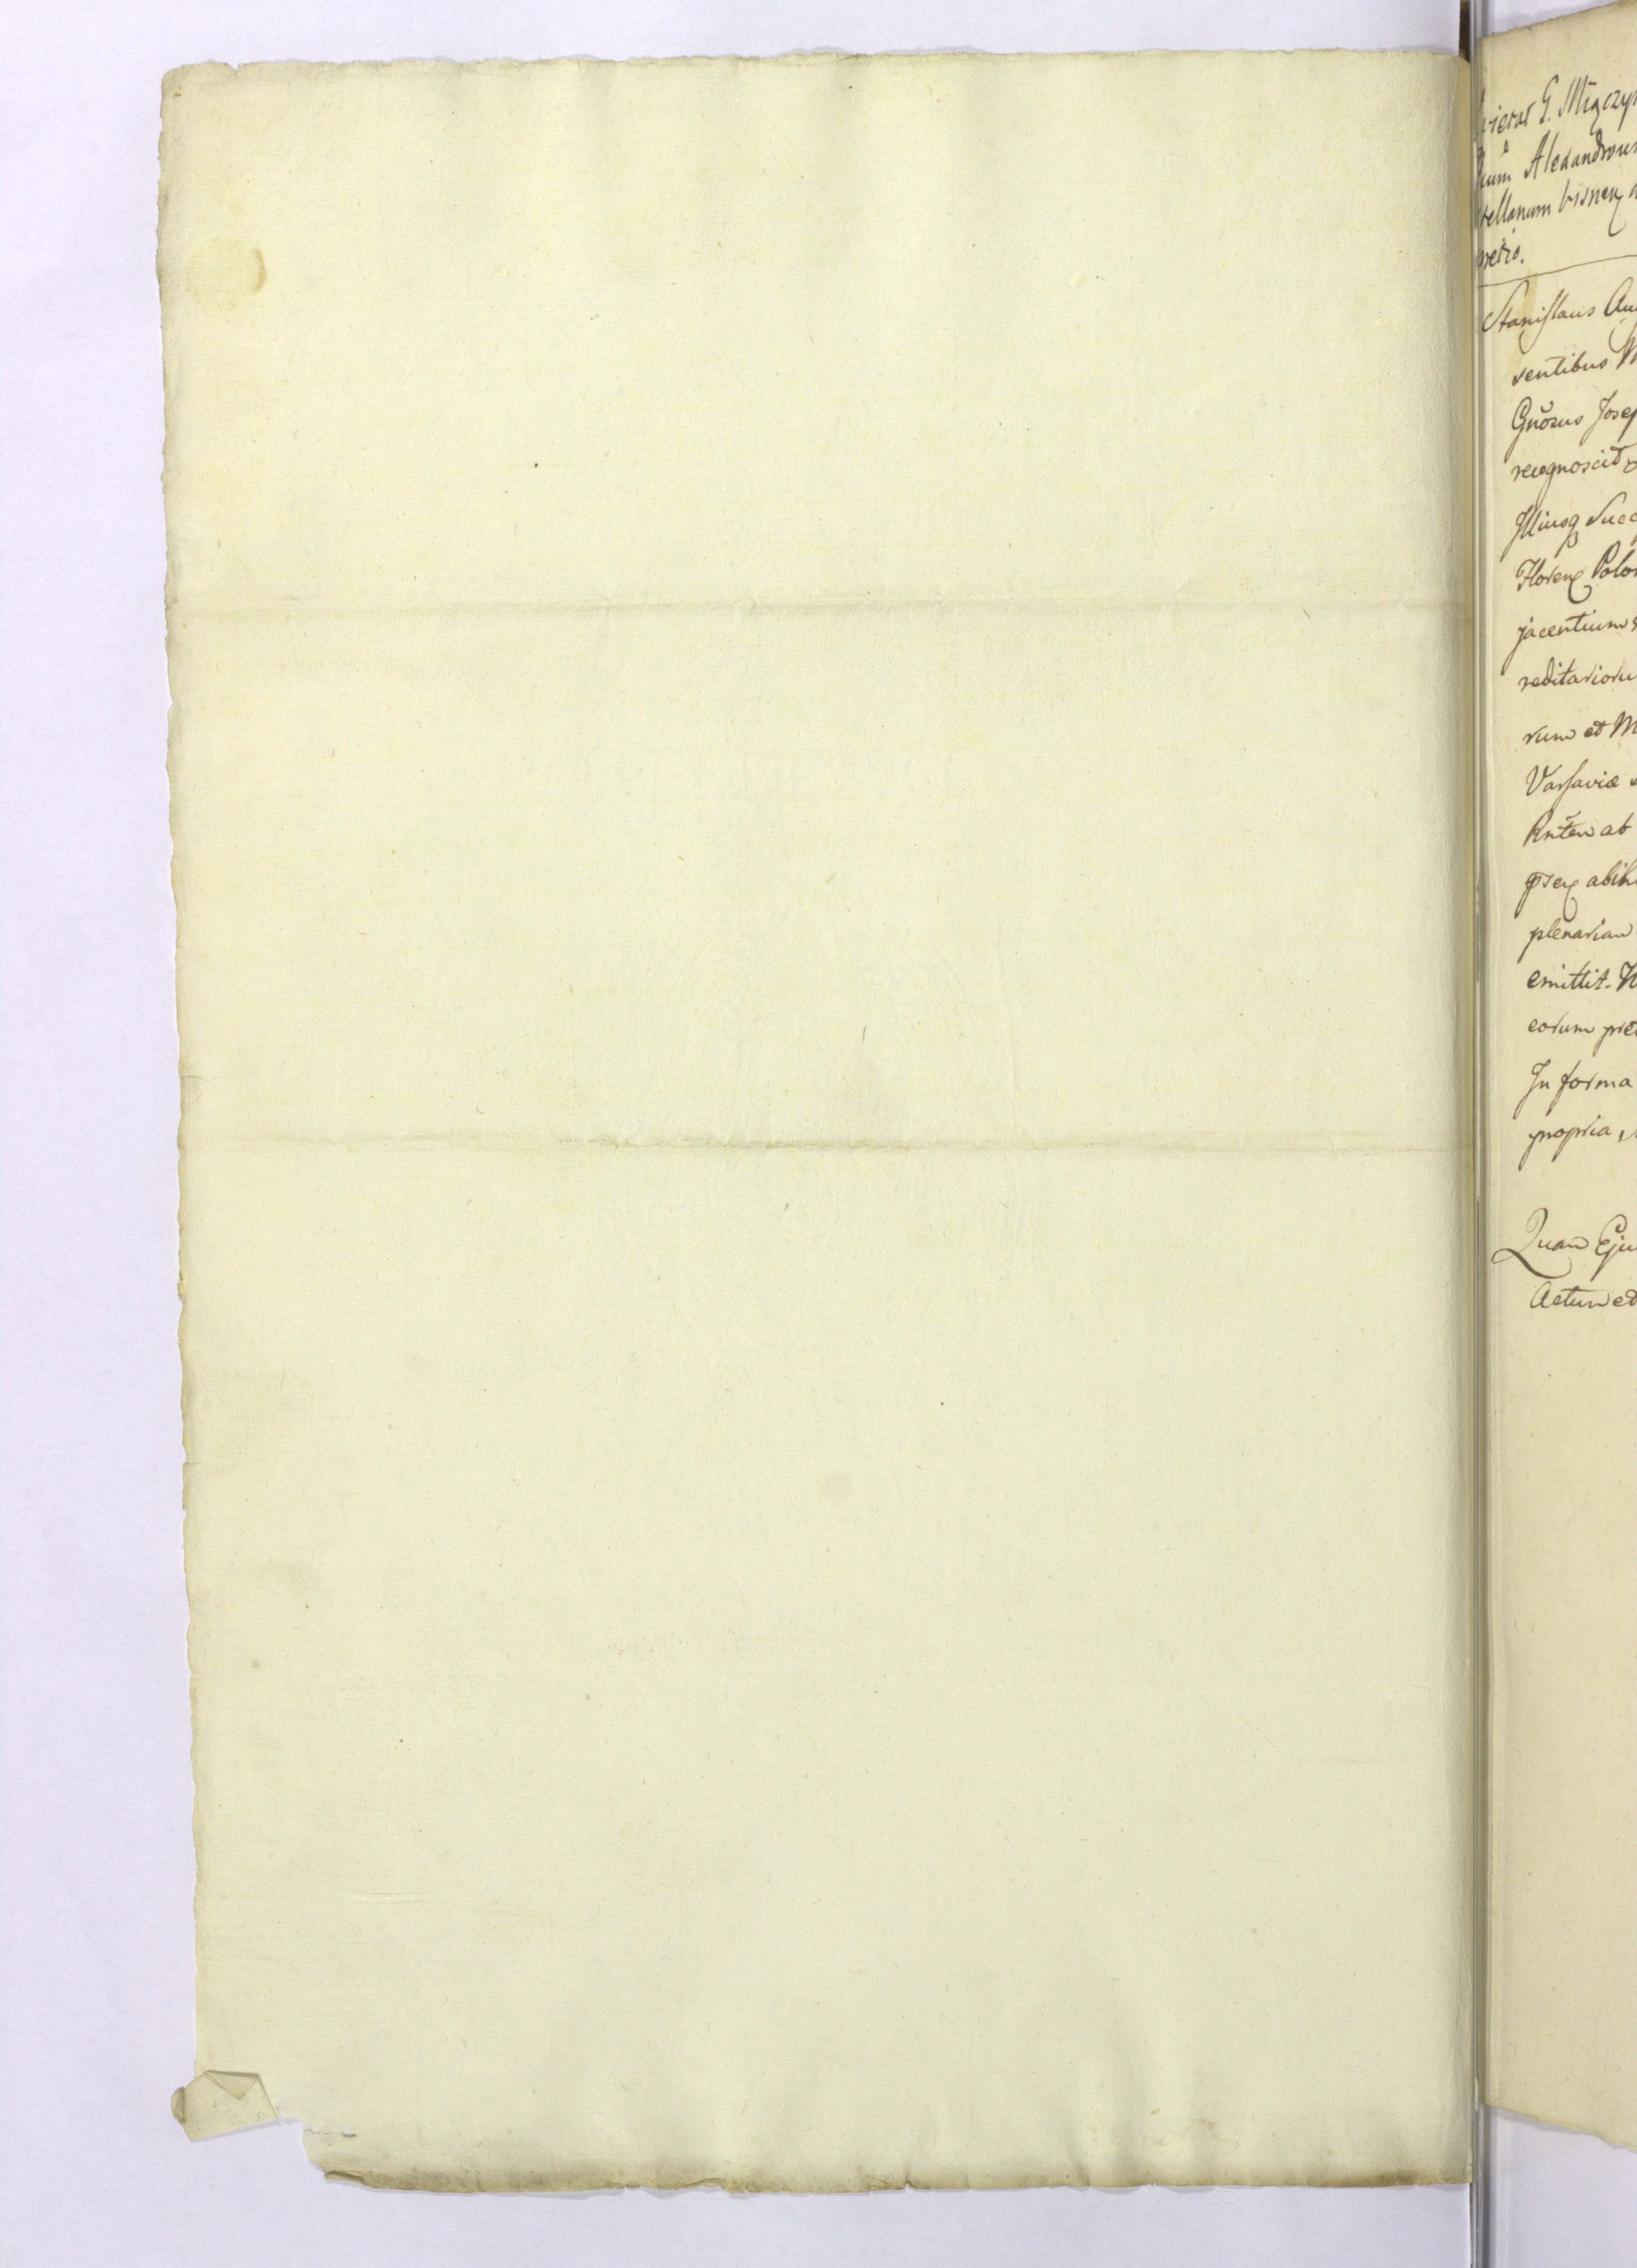 G. Miączyń
Alexandrum
tellanum Visnen
pretio.
Stanislaus Au
sentibus
Gnosus Josep
recognoscit
Illiusq Succ
Floren Polon
jacentium
reditarioru
rum et M
Varsaviæ
Rnten ab
abih
plenariam
emittit.
eorum pre
In forma
propria,
Quam Eju
Actum et